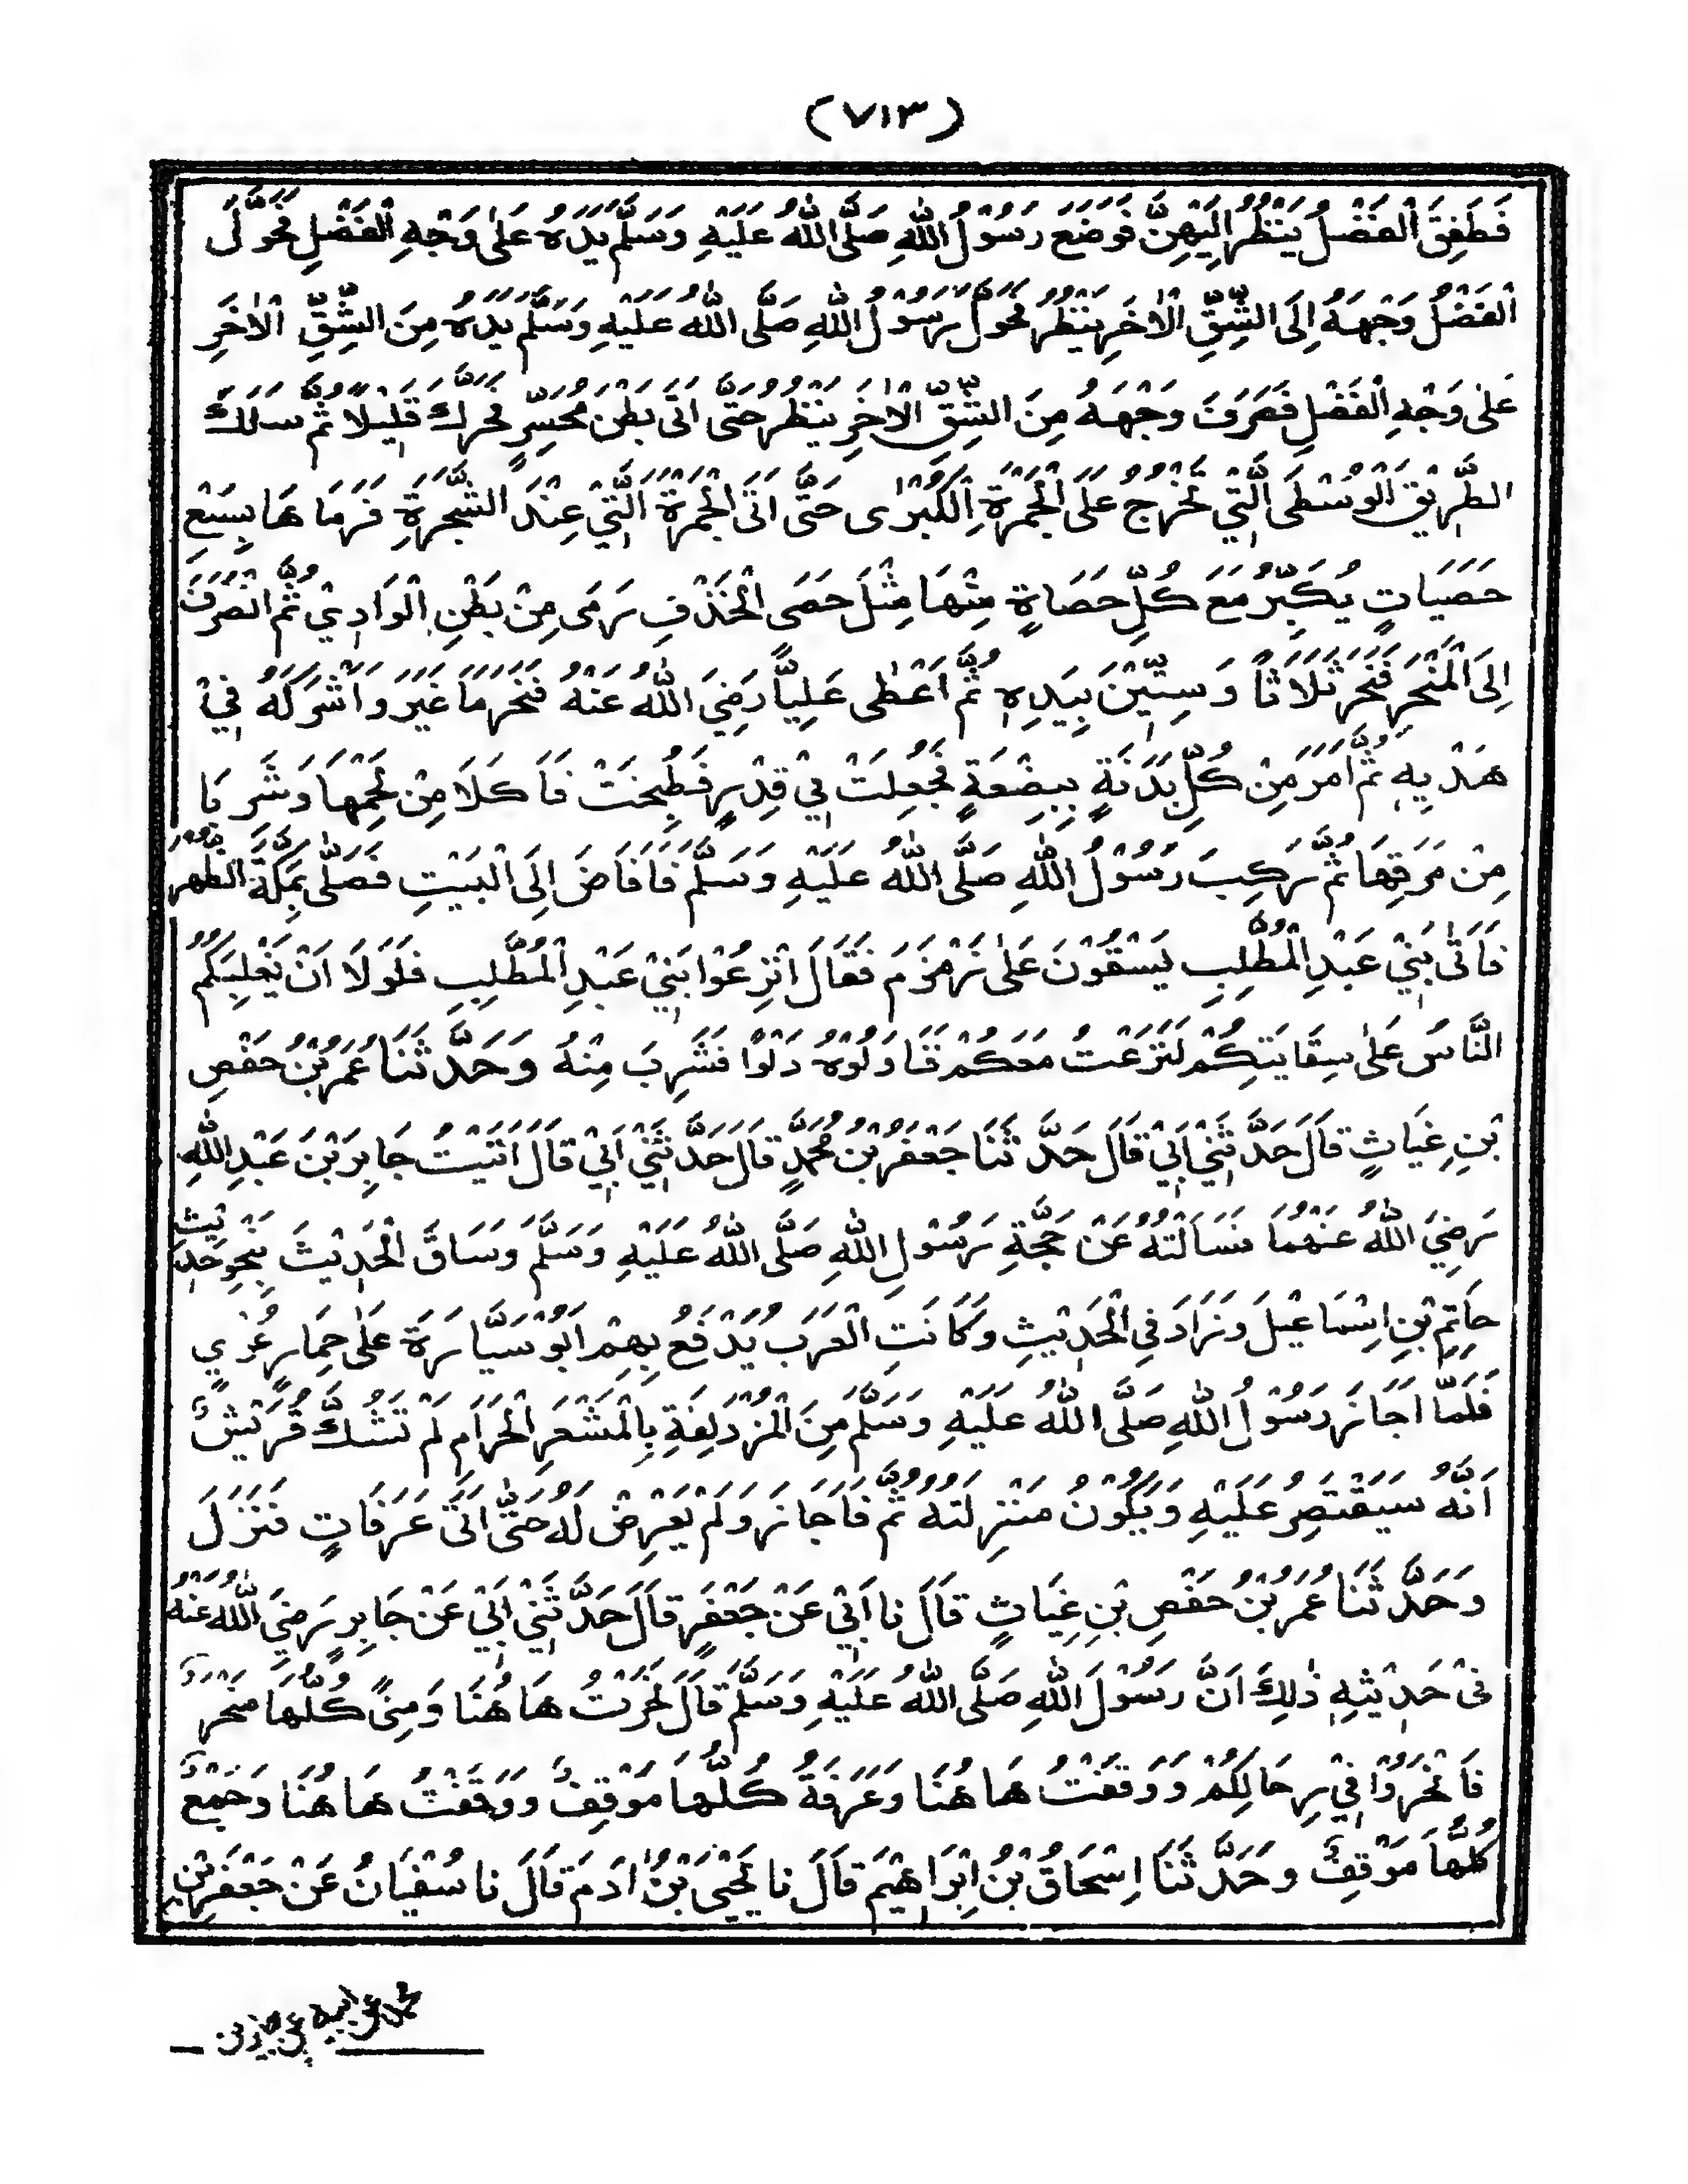 (٧١٣)
فَطَفِقَ الْفَضْلُ يَنْظُرُ اِلَيْهِنَّ فَوَضَعَ رَسُوْلُ اللّٰهِ صَلَّى اللّٰهُ عَلَيْهِ وَسَلَّمَ يَدَهُ عَلٰى وَجْهِ الْفَضْلِ فَحَوَّلَ
الْفَضْلُ وَجْهَهُ اِلَى الشِّقِّ الْاٰخَرِ يَنْظُرُ فَحَوَّلَ رَسُوْلُ اللّٰهِ صَلَّى اللّٰهُ عَلَيْهِ وَسَلَّمَ يَدَهُ مِنَ الشِّقِّ الْاٰخَرِ
عَلٰى وَجْهِ الْفَضْلِ فَصَرَفَ وَجْهَهُ مِنَ الشِّقِّ الْاٰخَرِ يَنْظُرُ حَتّٰى اَتٰى بَطْنَ مُحَسِّرٍ فَحَرَّكَ قَلِيْلًا ثُمَّ سَلَكَ
الطَّرِيْقَ الْوُسْطَى الَّتِيْ تَخْرُجُ عَلَى الْجَمْرَةِ الْكُبْرٰى حَتّٰى اَتَى الْجَمْرَةَ الَّتِيْ عِنْدَ الشَّجَرَةِ فَرَمَاهَا بِسَبْعِ
حَصَيَاتٍ يُكَبِّرُ مَعَ كُلِّ حَصَاةٍ مِنْهَا مِثْلَ حَصَى الْخَذْفِ رَمٰى مِنْ بَطْنِ الْوَادِيْ ثُمَّ انْصَرَفَ
اِلَى الْمَنْحَرِ فَنَحَرَ ثَلَاثًا وَسِتِّيْنَ بِيَدِهٖ ثُمَّ اَعْطٰى عَلِيًّا رَضِيَ اللّٰهُ عَنْهُ فَنَحَرَ مَا غَبَرَ وَاَشْرَكَهُ فِيْ
هَدْيِهٖ ثُمَّ اَمَرَ مِنْ كُلِّ بَدَنَةٍ بِبِضْعَةٍ فَجُعِلَتْ فِيْ قِدْرٍ فَطُبِخَتْ فَاَكَلَا مِنْ لَحْمِهَا وَشَرِبَا
مِنْ مَرَقِهَا ثُمَّ رَكِبَ رَسُوْلُ اللّٰهِ صَلَّى اللّٰهُ عَلَيْهِ وَسَلَّمَ فَاَفَاضَ اِلَى الْبَيْتِ فَصَلّٰى بِمَكَّةَ الظُّهْرَ
فَاَتٰى بَنِيْ عَبْدِ الْمُطَّلِبِ يَسْقُوْنَ عَلٰى زَمْزَمَ فَقَالَ انْزِعُوْا بَنِيْ عَبْدِ الْمُطَّلِبِ فَلَوْلَا اَنْ يَغْلِبَكُمُ
النَّاسُ عَلٰى سِقَايَتِكُمْ لَنَزَعْتُ مَعَكُمْ فَنَاوَلُوْهُ دَلْوًا فَشَرِبَ مِنْهُ وَحَدَّثَنَا عُمَرُ بْنُ حَفْصِ
بْنِ غِيَاثٍ قَالَ حَدَّثَنِيْ اَبِيْ قَالَ حَدَّثَنَا جَعْفَرُ بْنُ مُحَمَّدٍ قَالَ حَدَّثَنِيْ اَبِيْ قَالَ اَتَيْتُ جَابِرَ بْنَ عَبْدِ اللّٰهِ
رَضِيَ اللّٰهُ عَنْهُمَا فَسَاَلْتُهُ عَنْ حَجَّةِ رَسُوْلِ اللّٰهِ صَلَّى اللّٰهُ عَلَيْهِ وَسَلَّمَ وَسَاقَ الْحَدِيْثَ بِنَحْوِ حَدِيْثِ
حَاتِمِ بْنِ اِسْمَاعِيْلَ وَزَادَ فِي الْحَدِيْثِ وَكَانَتِ الْعَرَبُ يَدْفَعُ بِهِمْ اَبُوْ سَيَّارَةَ عَلٰى حِمَارٍ عُرْيٍ
فَلَمَّا اَجَازَ رَسُوْلُ اللّٰهِ صَلَّى اللّٰهُ عَلَيْهِ وَسَلَّمَ مِنَ الْمُزْدَلِفَةِ بِالْمَشْعَرِ الْحَرَامِ لَمْ تَشُكَّ قُرَيْشٌ
اَنَّهُ سَيَقْتَصِرُ عَلَيْهِ وَيَكُوْنُ مَنْزِلَتَهُ ثُمَّ فَاَجَازَ وَلَمْ يَعْرِضْ لَهُ حَتّٰى اَتٰى عَرَفَاتٍ فَنَزَلَ
وَحَدَّثَنَا عُمَرُ بْنُ حَفْصِ بْنِ غِيَاثٍ قَالَ نَا اَبِيْ عَنْ جَعْفَرٍ قَالَ حَدَّثَنِيْ اَبِيْ عَنْ جَابِرٍ رَضِيَ اللّٰهُ عَنْهُ
فِيْ حَدِيْثِهٖ ذٰلِكَ اَنَّ رَسُوْلَ اللّٰهِ صَلَّى اللّٰهُ عَلَيْهِ وَسَلَّمَ قَالَ نَحَرْتُ هَاهُنَا وَمِنًى كُلُّهَا مَنْحَرٌ
فَانْحَرُوْا فِيْ رِحَالِكُمْ وَوَقَفْتُ هَاهُنَا وَعَرَفَةُ كُلُّهَا مَوْقِفٌ وَوَقَفْتُ هَاهُنَا وَجَمْعٌ
كُلُّهَا مَوْقِفٌ وَحَدَّثَنَا اِسْحَاقُ بْنُ اِبْرَاهِيْمَ قَالَ نَا يَحْيَى بْنُ اٰدَمَ قَالَ نَا سُفْيَانُ عَنْ جَعْفَرِ بْنِ